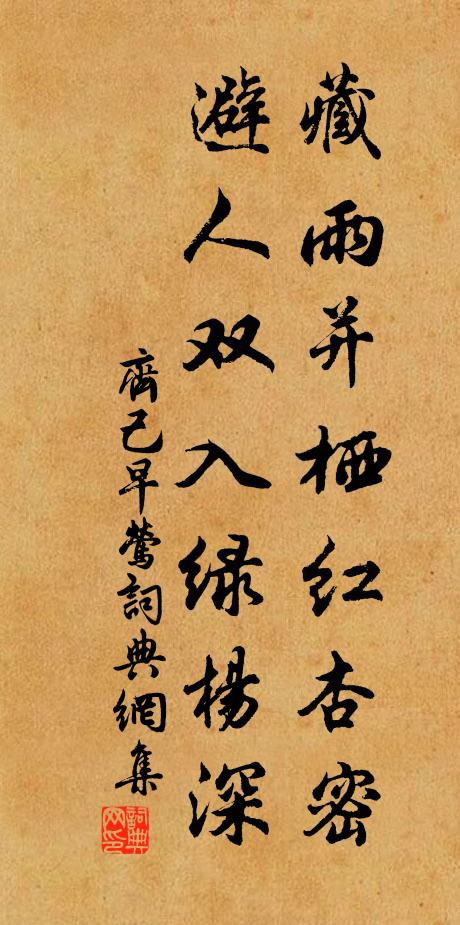 藏雨并栖红杏密
避人双入绿杨深
齊己早鶯詞典網集
詞典
网印